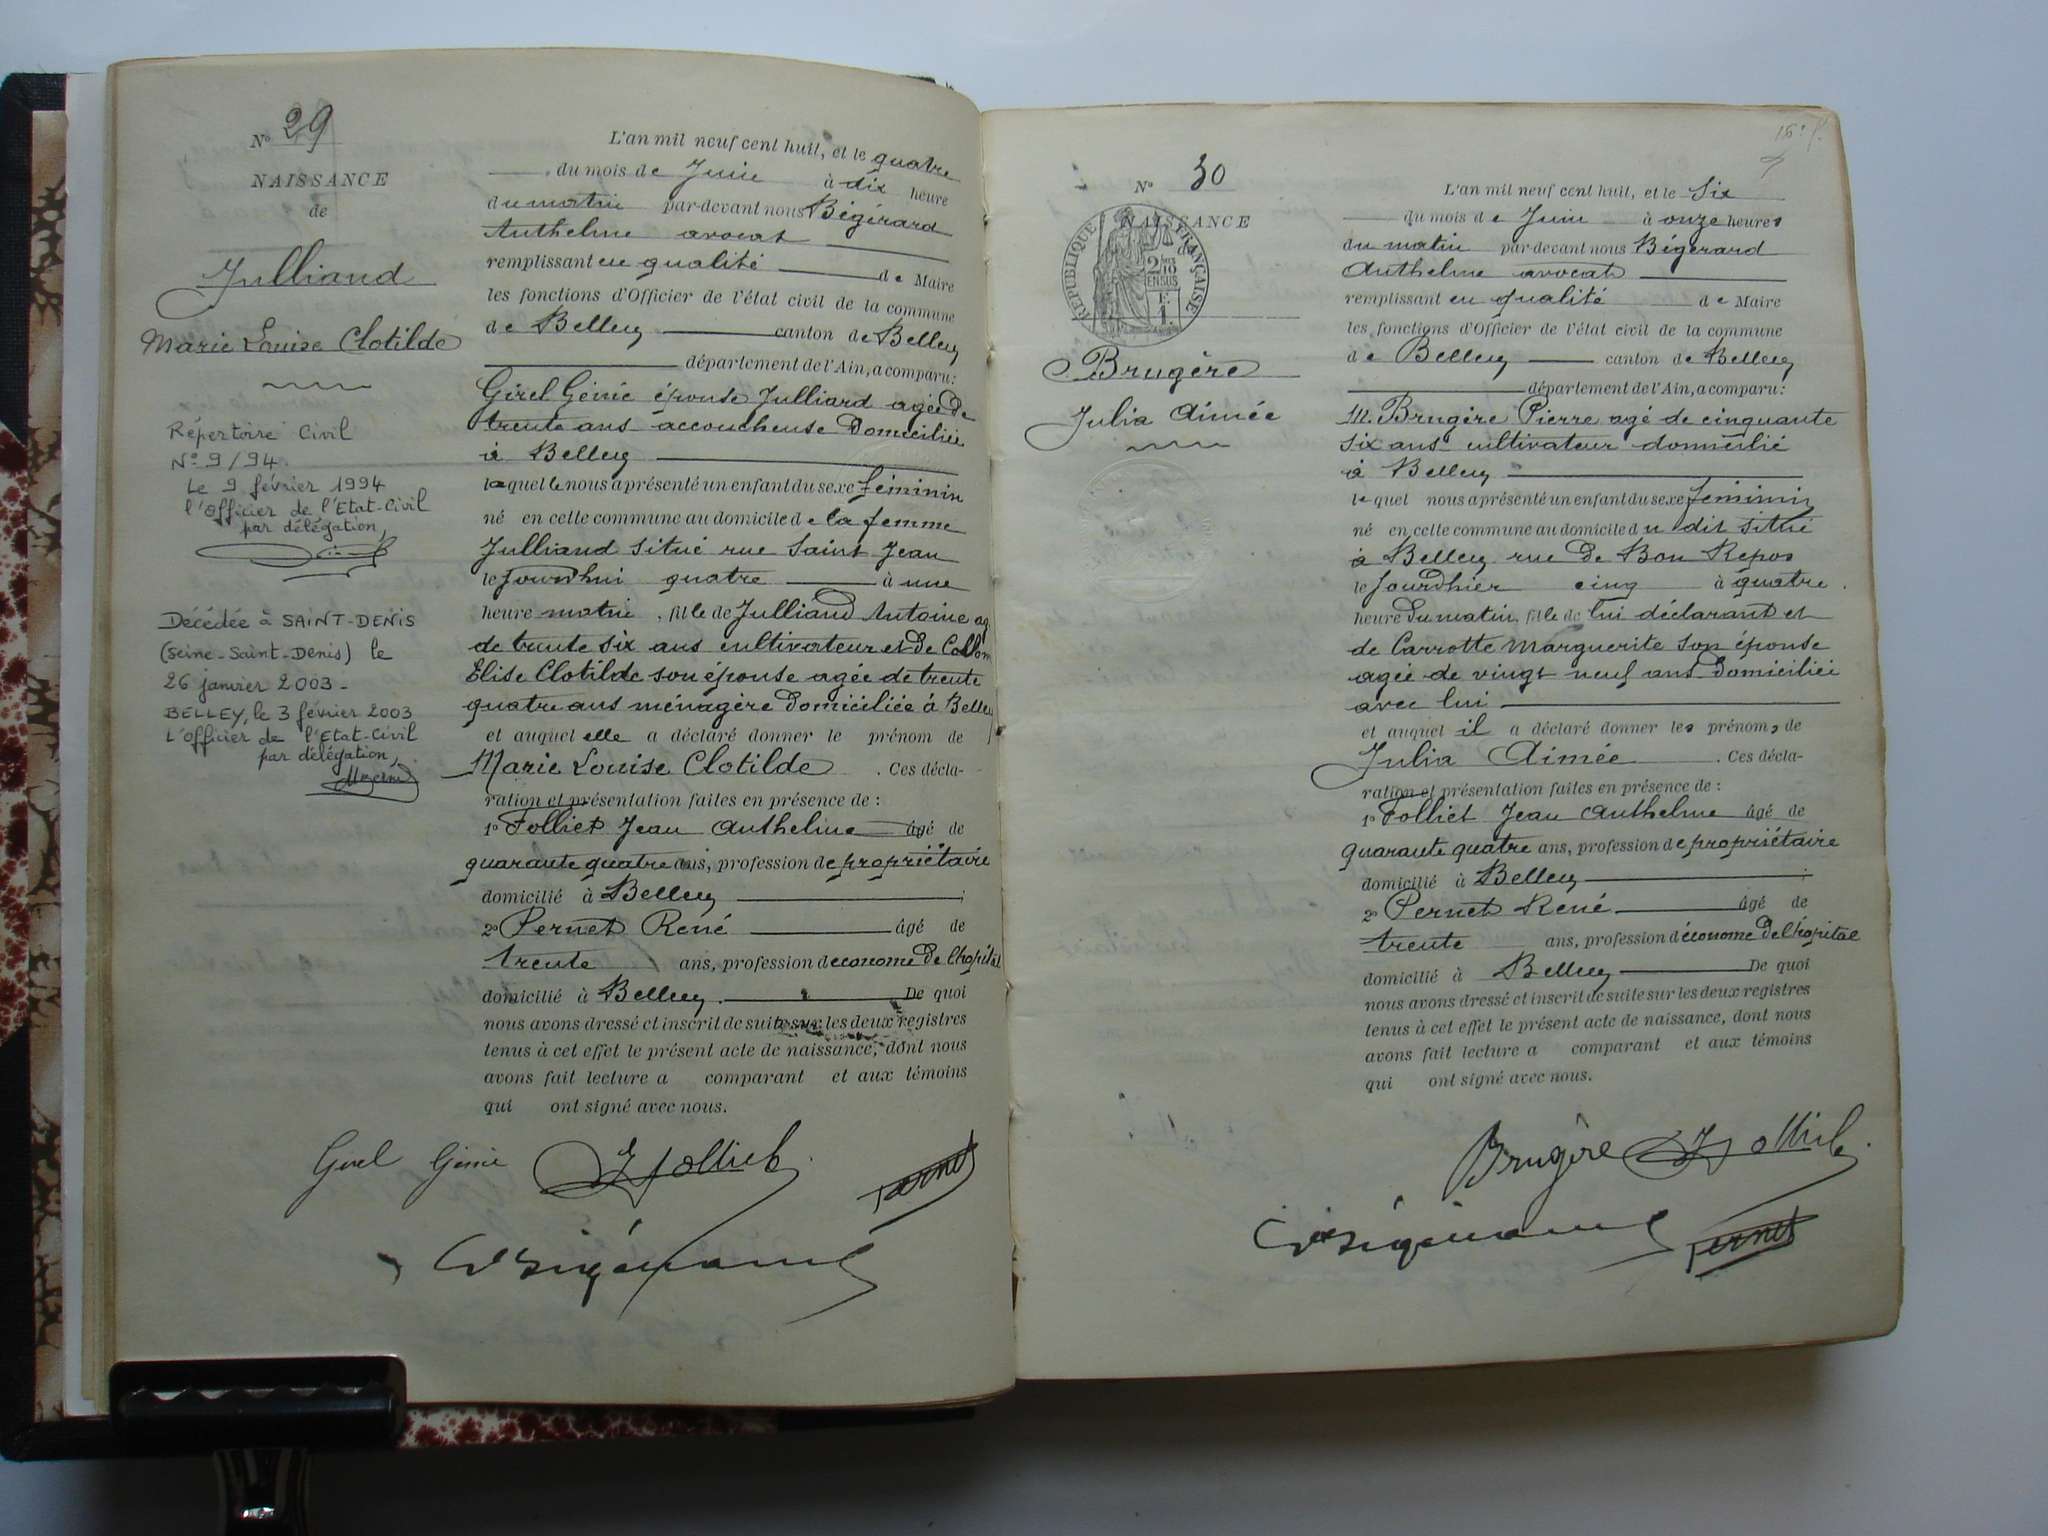 Nº 29
NAISSANCE
de
Julliand
Marie Louise Clotilde
Répertoire Civil
Nº 9/94.
Le 9 février 1994
l'Officier de l'Etat-Civil
par délégation,
Décédée à SAINT-DENIS
(Seine-Saint-Denis) le
26 janvier 2003-
BELLEY, le 3 février 2003
L'Officier de l'Etat-Civil
par délégation,
L'an mil neuf cent huit, et le quatre
du mois de Juin à dix heure
du matin par-devant nous Bégérard
Anthelme avocat
remplissant en qualité de Maire
les fonctions d'Officier de l'état civil de la commune
de Belley canton de Belley
département de l'Ain, a comparu:
Girel Génie épouse Julliard agée de
trente ans accoucheuse Domiciliée
à Belley
laquelle nous a présenté un enfant du sexe féminin
né en cette commune au domicile de la femme
Julliand situé rue Saint Jean
le Jourd'hui quatre à une
heure matin, fille de Julliand Antoine ag
de trente six ans cultivateur et de Collom
Elise Clotilde son épouse agée de trente
quatre ans ménagère Domiciliée à Belley
et auquel elle a déclaré donner le prénom de
Marie Louise Clotilde. Ces décla-
ration et présentation faites en présence de :
1º Folliet Jean Anthelme âgé de
quarante quatre ans, profession de propriétaire
domicilié à Belley ;
2º Pernet René âgé de
trente ans, profession d économe de l'hopital
domicilié à Belley. De quoi
nous avons dressé et inscrit de suite sur les deux registres
tenus à cet effet le présent acte de naissance, dont nous
avons fait lecture a comparant et aux témoins
qui ont signé avec nous.
Girel Génie J folliet Pernet
16e f.
Nº 30
NAISSANCE
RÉPUBLIQUE FRANÇAISE
2/10
EN SUS
F.
1.
Brugère
Julia Aimée
L'an mil neuf cent huit, et le Six
du mois de Juin à onze heures
du matin par-devant nous Bégérard
Anthelme avocat
remplissant en qualité de Maire
les fonctions d'Officier de l'état civil de la commune
de Belley canton de Belley
département de l'Ain, a comparu:
M. Brugère Pierre agé de cinquante
six ans cultivateur domicilié
à Belley
lequel nous a présenté un enfant du sexe féminin
né en cette commune au domicile du dit situé
à Belley rue de Bon Repos
le Jourdhier cinq à quatre
heure du matin, fille de lui déclarant et
de Carrotte Marguerite son épouse
agée de vingt neuf ans Domiciliée
avec lui
et auquel il a déclaré donner les prénoms de
Julia Aimée. Ces décla-
ration et présentation faites en présence de :
1º Folliet Jean Anthelme âgé de
quarante quatre ans, profession de propriétaire
domicilié à Belley ;
2º Pernet René âgé de
trente ans, profession d économe de l'hopital
domicilié à Belley De quoi
nous avons dressé et inscrit de suite sur les deux registres
tenus à cet effet le présent acte de naissance, dont nous
avons fait lecture a comparant et aux témoins
qui ont signé avec nous.
Brugère J folliet
Pernet